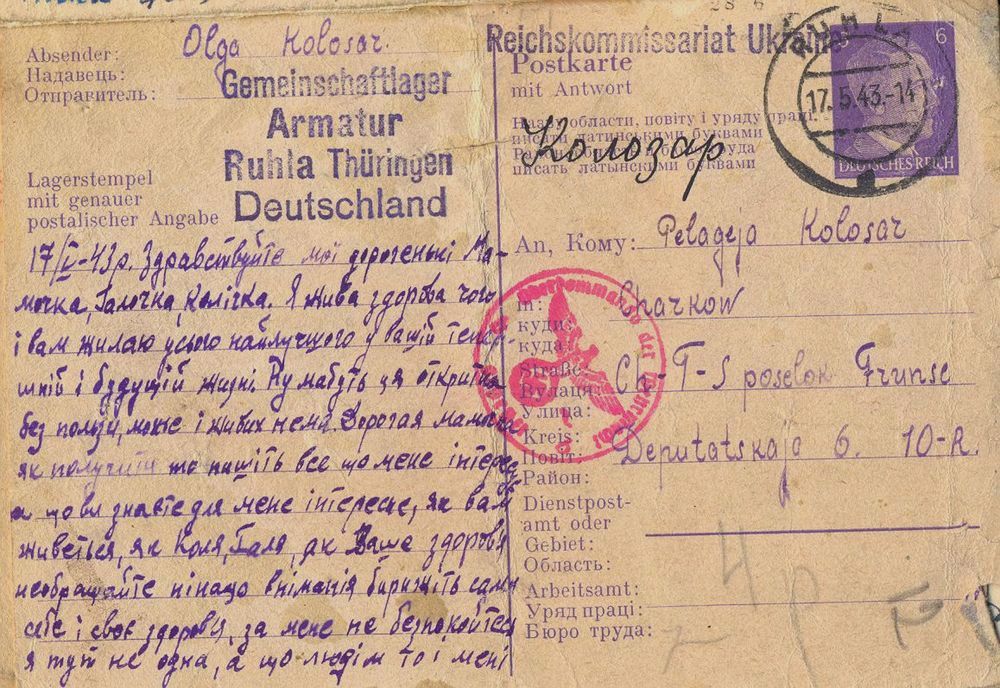 Absender:
Надавець:
Отправитель:
Olga Kolosar.
Gemeinschaftlager
Armatur
Ruhla Thüringen
Deutschland
Lagerstempel
mit genauer
postalischer Angabe
17/V-43р. Здравствуйте мої дорогенькі Ма-
мочка, Галочка, Колічка. Я жива здорова чого
і вам жилаю усього найлучшого у вашій тепер-
шній і будущій жизні. Ну мабуть ця откритка
без ползи, може і живих нема. Дорогая мамочка
як получите то пишіть все що мене інтересу
а що ви знаєте для мене інтересне, як вам
живеться, як Коля, Галя, як Ваше здоровя
необращайте нінащо вніманія бирижіть сами
себе і своє здоровя, за мене не безпокойтеся
я тут не одна, а що людім то і мені
Reichskommissariat Ukraine
Postkarte
mit Antwort
Назву области, повіту і уряду праці
писати латинськими буквами
писать латынскими буквами
Колозар
RUHLA
17.5.43.-14
6
DEUTSCHES REICH
An, Кому: Pelageja Kolosar
In:
куди:
куда:
Charkow
Straße:
Вулиця:
Улица:
Ch-T-S poselok Frunse
Kreis:
Повіт:
Район:
Deputatskaja 6. 10-R.
Dienstpost-
amt oder
Gebiet:
Область:
Arbeitsamt:
Уряд праці:
Бюро труда:
Oberkommando der Wehrmacht